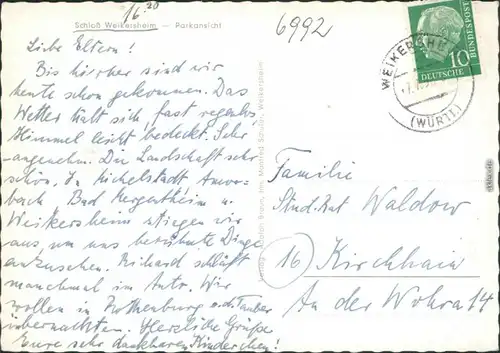 16.20
Schloß Weikersheim — Parkansicht
6992
Liebe Eltern!
Bis hierher sind wir
heute schon gekommen. Das
Wetter hält sich, fast regenlos
Himmel leicht bedeckt. Sehr
angenehm. Die Landschaft sehr
schön. In Michelstadt Amor-
bach Bad Mergentheim u.
Weikersheim stiegen wir
aus, um uns berühmte Dinge
anzusehen. Richard schläft
manchmal im Auto. Wir
wollen in Rothenburg o. d. Tauber
übernachten. Herzliche Grüße
Eure sehr dankbaren Kinderchen!
Verlag: Braun, Inh. Manfred Schuler, Weikersheim
WEIKERSHEIM
(WÜRTT)
10
DEUTSCHE
BUNDESPOST
Familie
Stud. Rat Waldow
16 Kirchhain
An der Wohra 14